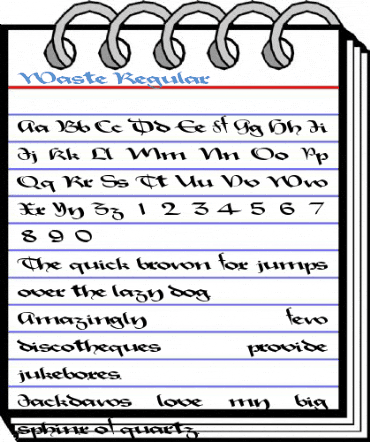 Waste Regular
Aa Bb Cc Dd Ee Ff Gg Hh Ii
Jj Kk Ll Mm Nn Oo Pp
Qq Rr Ss Tt Uu Vv Ww
Xx Yy Zz 1 2 3 4 5 6 7
8 9 0
The quick brown fox jumps
over the lazy dog
Amazingly few
discotheques provide
jukeboxes.
Jackdaws love my big
sphinx of quartz